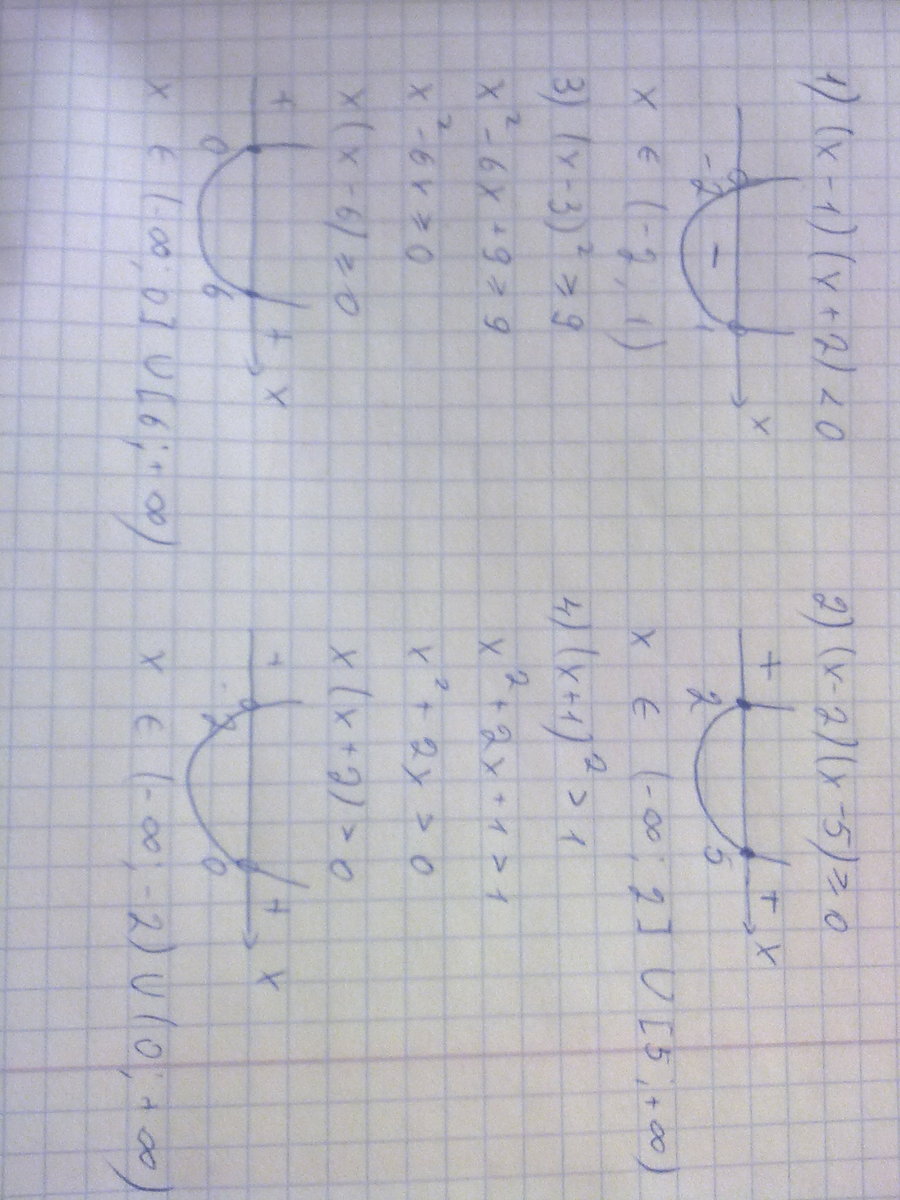 1) (x-1)(x+2)<0
-2 - 1 x
x ∈ (-2, 1)
2) (x-2)(x-5)≥0
+ 2 5 + x
x ∈ (-∞; 2] U [5; +∞)
3) (x-3)² ≥ 9
x² - 6x + 9 ≥ 9
x² - 6x ≥ 0
x(x-6) ≥ 0
+ 0 6 + x
x ∈ (-∞; 0] U [6; +∞)
4) (x+1)² > 1
x² + 2x + 1 > 1
x² + 2x > 0
x(x+2) > 0
+ -2 0 + x
x ∈ (-∞; -2) U (0; +∞)